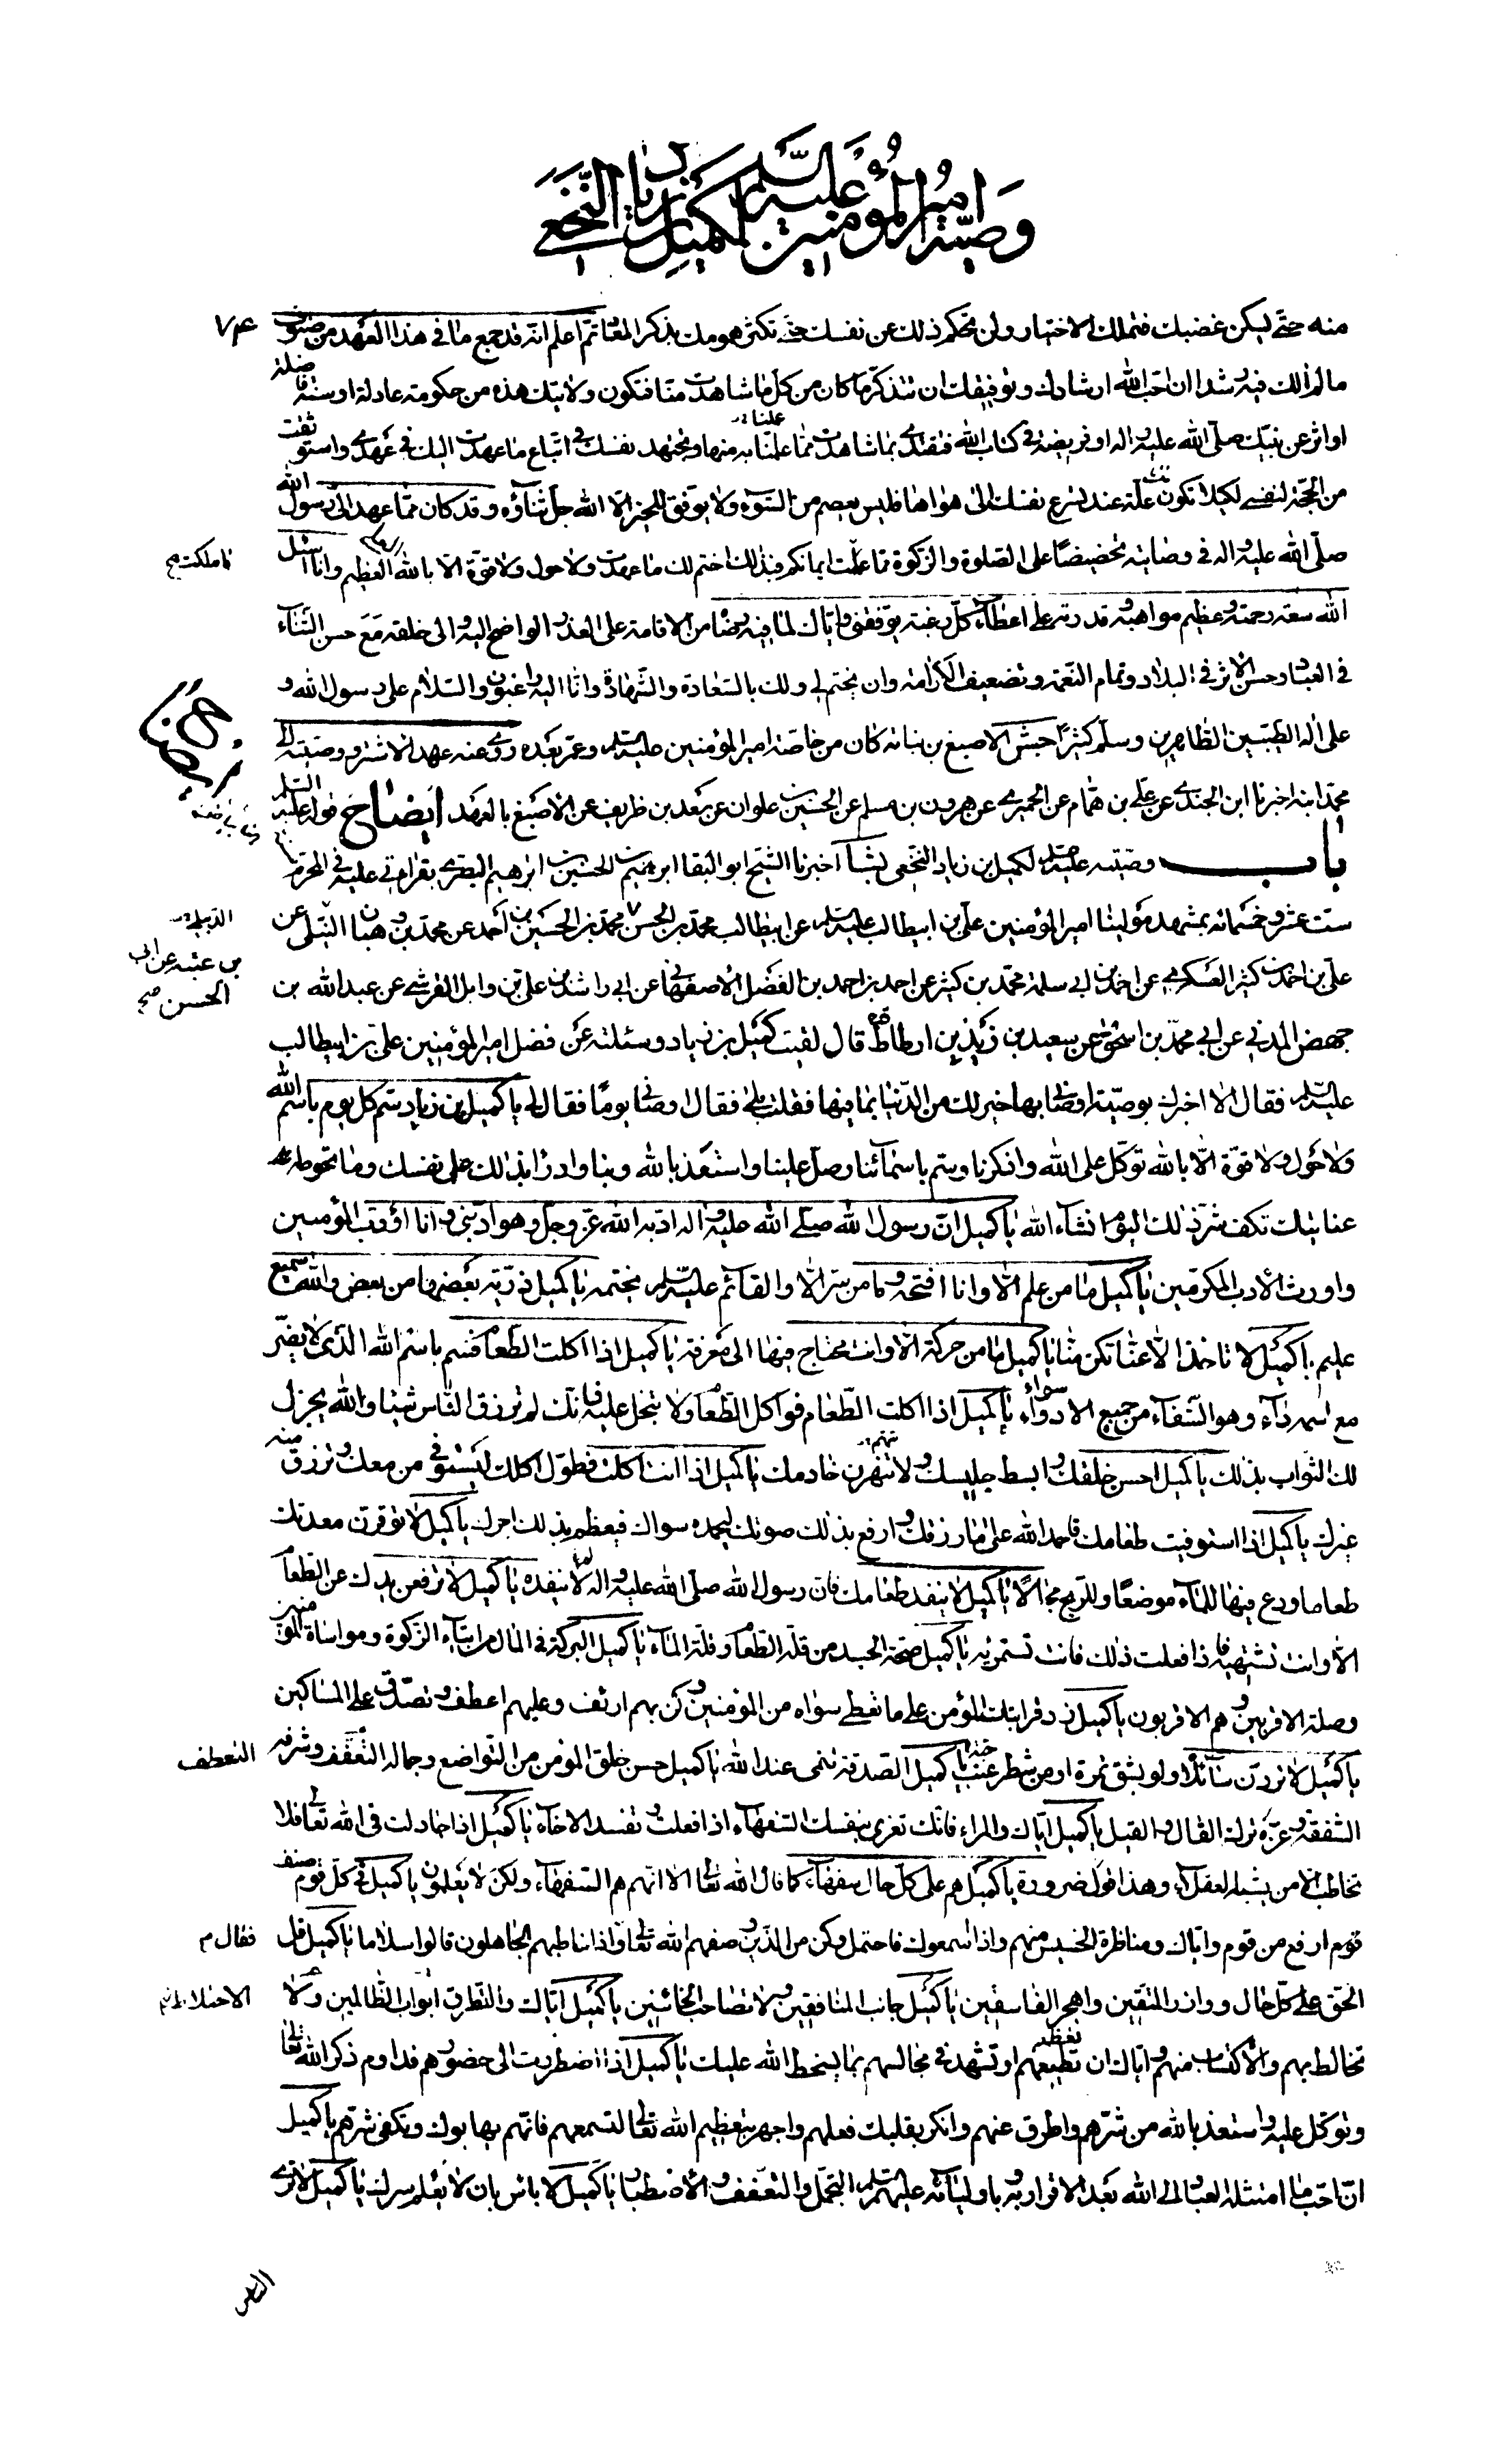 وصيّة امير المؤمنين عليه السّلم لكميل بن زياد النّخعي
٧٤
منه حتّى يسكن غضبك فتملك الاختيار ولن تحكم ذلك من نفسك حتّى تكثر همومك بذكر المعاد ثمّ اعلم انه قد جمع ما فى هذا العهد من صنوف
ما لم آلك فيه رشدا ان احبّ الله ارشادك وتوفيقك ان تتذكّر ما كان من كلّ ما شاهدت منّا فتكون ولايتك هذه من حكومة عادلة او سنّة فاضلة
او اثر عن نبيّك صلّى الله عليه واله او فريضة فى كتاب الله فتقتدى بما شاهدت ممّا علمنا به منها وتجتهد نفسك فى اتّباع ما عهدت اليك فى عهدى واستوثقت
من الحجّة لنفسى لكيلا تكون علّة عند تسرّع نفسك الى هواها فليس يعصم من السّوء ولا يوفّق للخير الّا الله جلّ ثناؤه وقد كان ممّا عهد الىّ رسول الله
صلّى الله عليه واله فى وصايته تحضيضا على الصلوة والزكوة وما ملكت ايمانكم فبذلك اختم لك ما عهدت ولا حول ولا قوّة الا بالله العظيم وانا اسئل
ما ملكت صح
الله سعة رحمته وعظيم مواهبه وقدرته على اعطاء كلّ رغبة يوفّقنى وايّاك لما فيه رضاه من الاقامة على العذر الواضح اليه والى خلقه مع حسن الثّناء
فى العباد وحسن الاثر فى البلاد وتمام النّعمة وتضعيف الكرامة وان يختم لى ولك بالسّعادة والشّهادة وانّا اليه راغبون والسّلام على رسول الله و
على اله الطيّبين الطّاهرين وسلّم كثيرا جش الاصبغ بن نباتة كان من خاصّة امير المؤمنين عليه السلم وعمر بعده روى عنه عهد الاشتر ووصيّته الى
محمّد ابنه اخبرنا ابن الجندى عن علىّ بن همّام عن الحميرى عن هرون بن مسلم عن الحسين بن علوان عن سعد بن طريف عن الاصبغ بالعهد ايضاح قوله عليه السّلم
باب وصيّته عليه السلم لكميل بن زياد النّخعى بشا اخبرنا الشيخ ابو البقا ابرهيم بن الحسين بن ابرهيم البصرى بقراءتى عليه فى المحرّم
ستّ عشر وخمسمائة بمشهد مولينا امير المؤمنين علىّ بن ابيطالب عليه السلم عن ابيطالب محمّد بن الحسن محمّد بن الحسين بن أحمد عن محمّد بن وهبان النبلى عن
الدبيلى
علىّ بن احمد بن كثير العسكرى عن احمد بن ابى سلمة محمّد بن كثير عن احمد بن احمد بن الفضل الاصفهانى عن ابى راشد بن علىّ بن وابل القرشى عن عبد الله بن
الحسن صح
حفص المدنى عن ابى محمّد بن اسحق عن سعيد بن زيد بن ارطاة قال لقيت كميل بن زياد وسئلته عن فضل امير المؤمنين علىّ بن ابيطالب
عليه السّلم فقال الا اخبرك بوصيّة اوصانى بها خير لك من الدّنيا بما فيها فقلت بلى فقال اوصانى يوما فقال لى يا كميل بن زياد سمّ كلّ يوم باسم الله
ولا حول ولا قوّة الّا بالله توكّل على الله واذكرنا وسمّ باسمائنا وصلّ علينا واستعذ بالله وبنا وادرأ بذلك على نفسك وما تحوطه
عنايتك تكف شرّ ذلك اليوم انشاء الله يا كميل انّ رسول الله صلّى الله عليه واله ادّبه الله عزّ وجلّ وهو ادّبنى وانا اؤدّب المؤمنين
واورث الأدب المكرّمين يا كميل ما من علم الّا وانا افتحه وما من سرّ الّا والقائم عليه السّلم يختمه يا كميل ذرّيّة بعضها من بعض والله سميع
عليم يا كميل لا تاخذ الّا عنّا تكن منّا يا كميل ما من حركة الّا وانت محتاج فيها الى معرفة يا كميل اذا اكلت الطّعام فسمّ باسم الله الّذى لا يضرّ
مع اسمه داء وهو الشّفاء من جميع الادواء يا كميل اذا اكلت الطّعام فواكل الطّعام ولا تبخل عليه فانّك لم ترزق النّاس شيئا والله يجزل
لك الثّواب بذلك يا كميل احسن خلقك وابسط جليسك ولا تنهرن خادمك يا كميل اذا انت اكلت فطوّل اكلك ليستوفى من معك ويرزق منه
غيرك يا كميل اذا استوفيت طعامك فاحمد الله على ما رزقك وارفع بذلك صوتك ليحمده سواك فيعظم بذلك اجرك يا كميل لا توقرن معدتك
طعاما ودع فيها للماء موضعا وللرّيح مجالا يا كميل لا ينفد طعامك فانّ رسول الله صلّى الله عليه واله لا ينفده يا كميل لا ترفعن يدك عن الطّعام
الا وانت تشتهيه فاذا فعلت ذلك فانت تستمريه يا كميل صحّة الجسد من قلّة الطّعام وقلّة الماء يا كميل البركة فى المال من ايتاء الزّكوة ومواساة المؤمنين
وصلة الاقربين وهم الاقربون يا كميل زد قرابتك المؤمن على ما تعطى سواه من المؤمنين وكن بهم ارئف وعليهم اعطف وتصدّق على المساكين
يا كميل لا تردّن سائلا ولو بشقّ تمرة او من شطر عنب يا كميل الصّدقة تنمى عند الله يا كميل حسن خلق المؤمن من التّواضع وجماله التّعفّف وشرفه
التعطف
الشّفقة وعزّه ترك القال والقيل يا كميل ايّاك والمراء فانّك تغرى بنفسك السّفهاء اذا فعلت وتفسد الاخاء يا كميل اذا جادلت فى الله تعالى فلا
تخاطب الّا من يشبه العقلاء وهذا قول ضرورة يا كميل هم على كلّ حال سفهاء كما قال الله تعالى الا انّهم هم السّفهاء ولكن لا يعلمون يا كميل فى كلّ صنف
قوم ارفع من قوم وايّاك ومناظرة الخسيس منهم واذا اسمعوك فاحتمل وكن من الّذين وصفهم الله تعالى واذا خاطبهم الجاهلون قالوا سلاما يا كميل قل
فقال م
الحقّ على كلّ حال ووازر المتّقين واهجر الفاسقين يا كميل جانب المنافقين ولا تصاحب الخائنين يا كميل ايّاك والتّطرّق ابواب الظّالمين ولا
الاختلاط بهم
تخالط بهم والاكتساب منهم وايّاك ان تطيعهم او تشهد فى مجالسهم بما يسخط الله عليك يا كميل اذا اضطررت الى حضورهم فداوم ذكر الله تعالى
وتوكّل عليه واستعذ بالله من شرّهم واطرق عنهم وانكر بقلبك فعلهم واجهر بتعظيم الله تعالى لتسمعهم فانّهم يهابوك وتكفى شرّهم يا كميل
انّ احبّ ما امتثله العباد الى الله بعد الاقرار به وباوليائه عليهم السّلم التجمّل والتّعفّف والاصطبار يا كميل لا باس بان لا يعلم سرّك يا كميل لا ترى